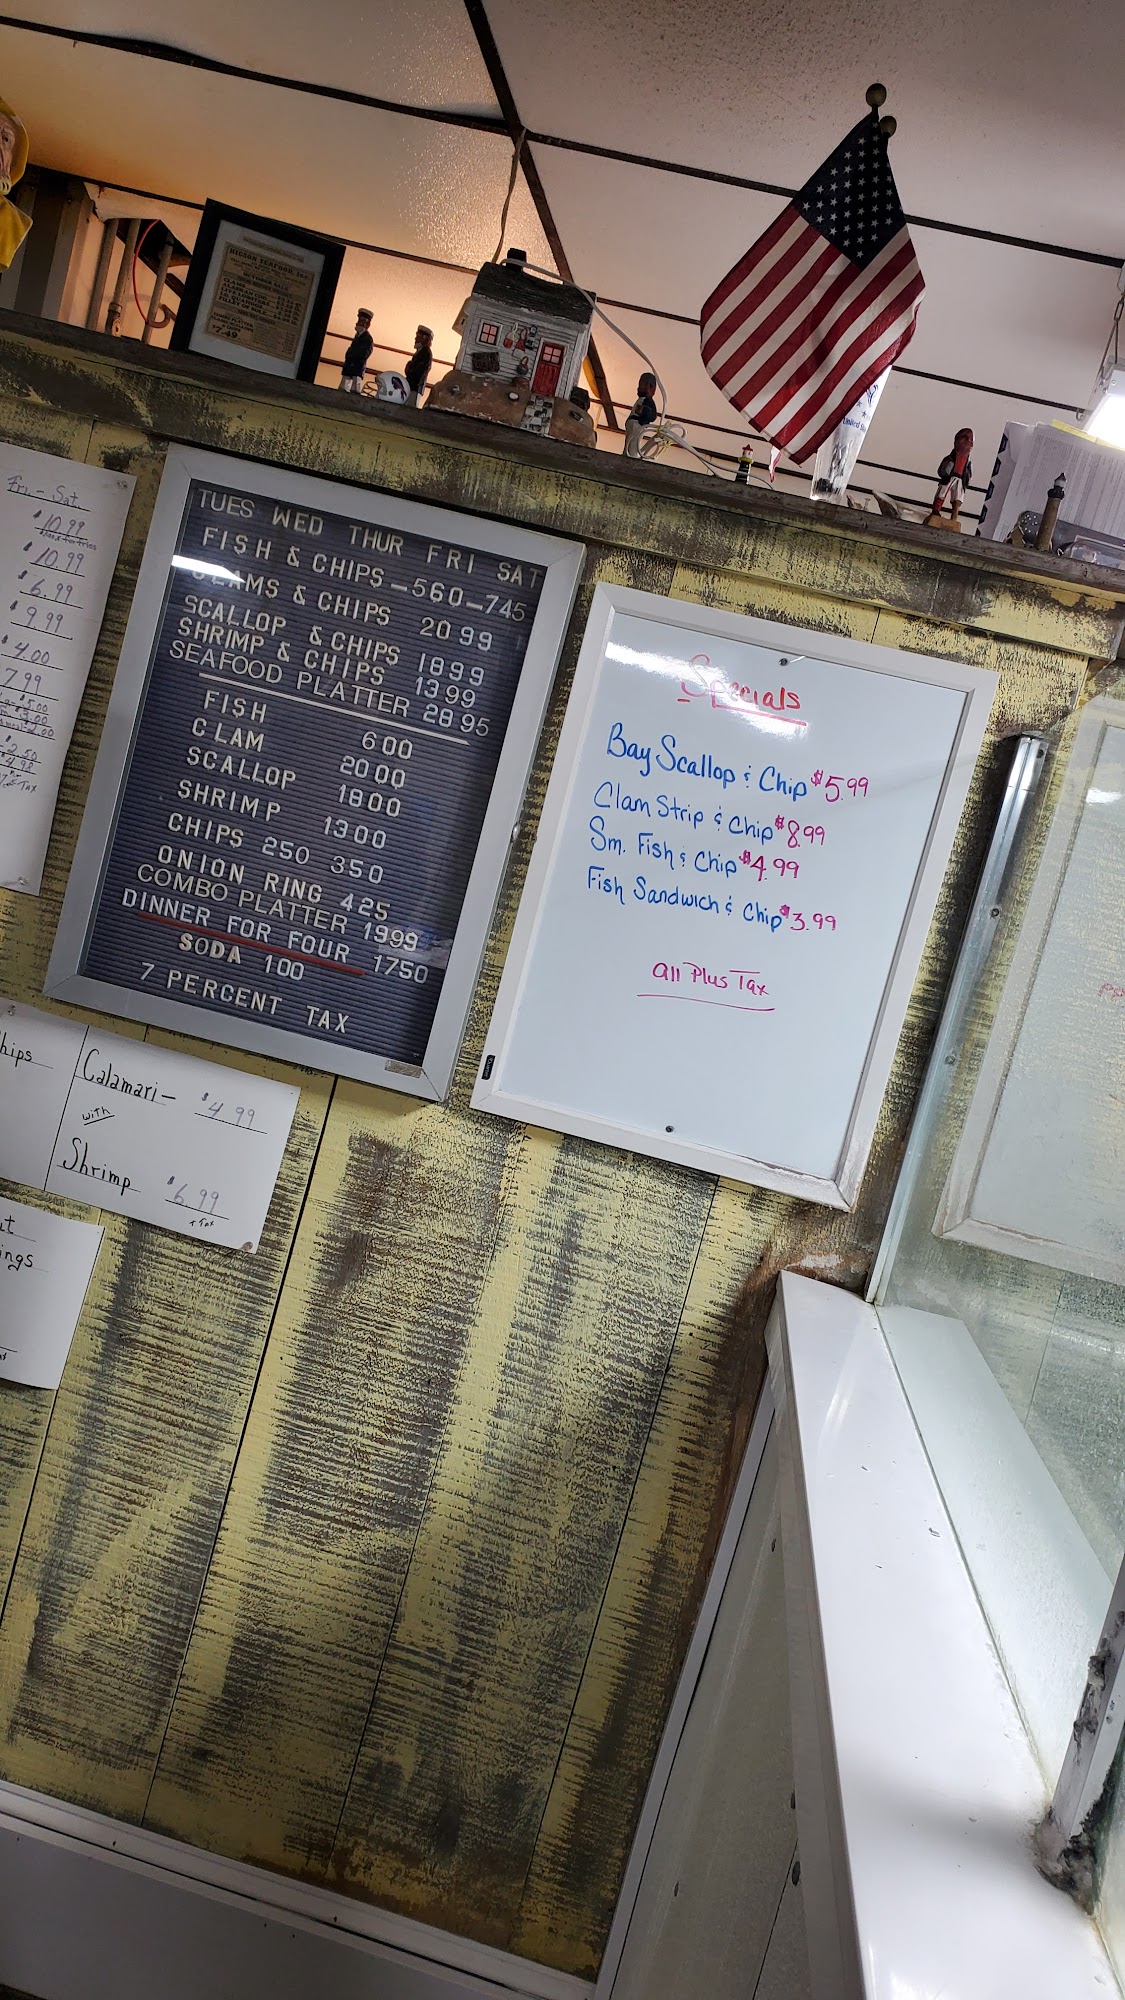 HIGSON SEAFOOD, Inc
OCTOBER SALE
$7.49
United St
Fri. - Sat.
$10.99
$10.99
$6.99
$9.99
$4.00
7.99
TUES WED THUR FRI SAT
FISH & CHIPS—560—745
CLAMS & CHIPS 2099
SCALLOP & CHIPS 1899
SHRIMP & CHIPS 1399
SEAFOOD PLATTER 2895
FISH 600
CLAM 2000
SCALLOP 1800
SHRIMP 1300
CHIPS 250 350
ONION RING 425
COMBO PLATTER 1999
DINNER FOR FOUR 1750
SODA 100
7 PERCENT TAX
Specials
Bay Scallop & Chip $5.99
Clam Strip & Chip $8.99
Sm. Fish & Chip $4.99
Fish Sandwich & Chip $3.99
All Plus Tax
hips
Calamari - $4.99
with
Shrimp $6.99
+ Tax
ings